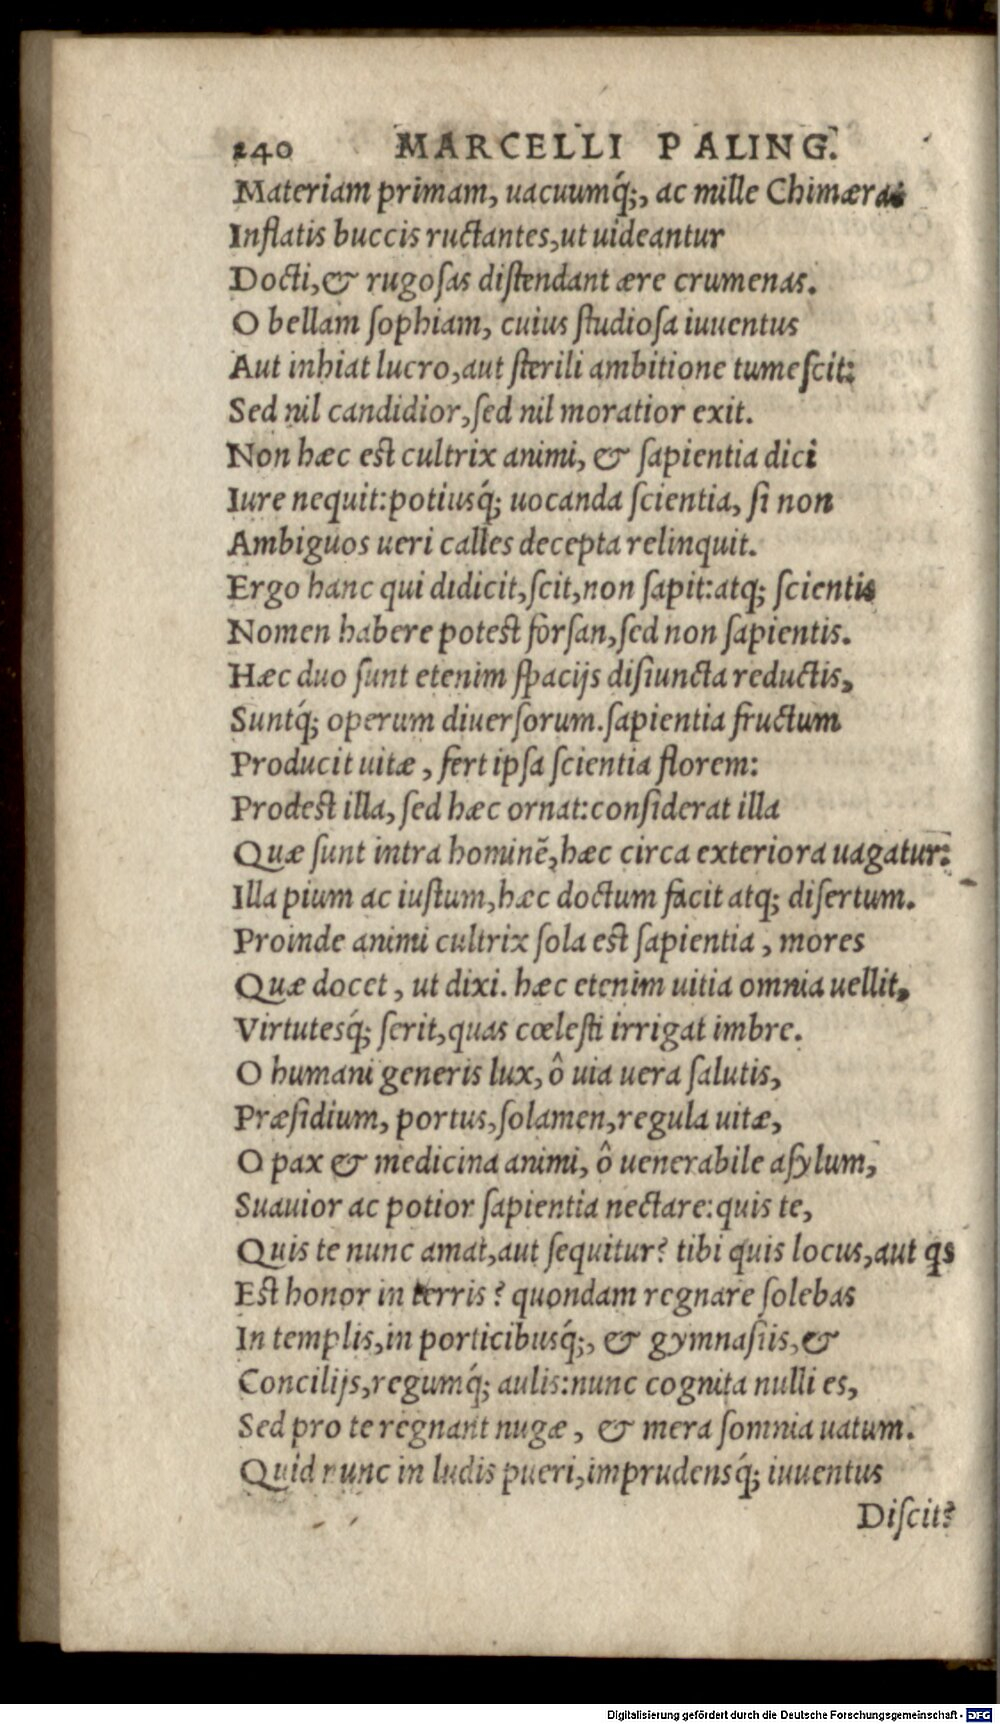 240 MARCELLI PALING.
Materiam primam, uacuumq́;, ac mille Chimæras
Inflatis buccis ructantes, ut uideantur
Docti, & rugoſas diſtendant ære crumenas.
O bellam ſophiam, cuius ſtudioſa iuuentus
Aut inhiat lucro, aut ſterili ambitione tumeſcit:
Sed nil candidior, ſed nil moratior exit.
Non hæc est cultrix animi, & ſapientia dici
Iure nequit: potiusq́; uocanda ſcientia, ſi non
Ambiguos ueri calles decepta relinquit.
Ergo hanc qui didicit, ſcit, non ſapit: atq; ſcientis
Nomen habere potest forſan, ſed non ſapientis.
Hæc duo ſunt etenim ſpacijs diſiuncta reductis,
Suntq́; operum diuerſorum. ſapientia fructum
Producit uitæ, fert ipſa ſcientia florem:
Prodest illa, ſed hæc ornat: conſiderat illa
Quæ ſunt intra hominẽ, hæc circa exteriora uagatur:
Illa pium ac iuſtum, hæc doctum facit atq; diſertum.
Proinde animi cultrix ſola est ſapientia, mores
Quæ docet, ut dixi. hæc etenim uitia omnia uellit,
Virtutesq́; ſerit, quas cœleſti irrigat imbre.
O humani generis lux, ô uia uera ſalutis,
Præſidium, portus, ſolamen, regula uitæ,
O pax & medicina animi, ô uenerabile aſylum,
Suauior ac potior ſapientia nectare: quis te,
Quis te nunc amat, aut ſequitur? tibi quis locus, aut qs
Est honor in terris? quondam regnare ſolebas
In templis, in porticibusq́;, & gymnaſiis, &
Concilijs, regumq́; aulis: nunc cognita nulli es,
Sed pro te regnant nugæ, & mera ſomnia uatum.
Quid nunc in ludis pueri, imprudensq́; iuuentus
Diſcit?
Digitalisierung gefördert durch die Deutsche Forschungsgemeinschaft - DFG